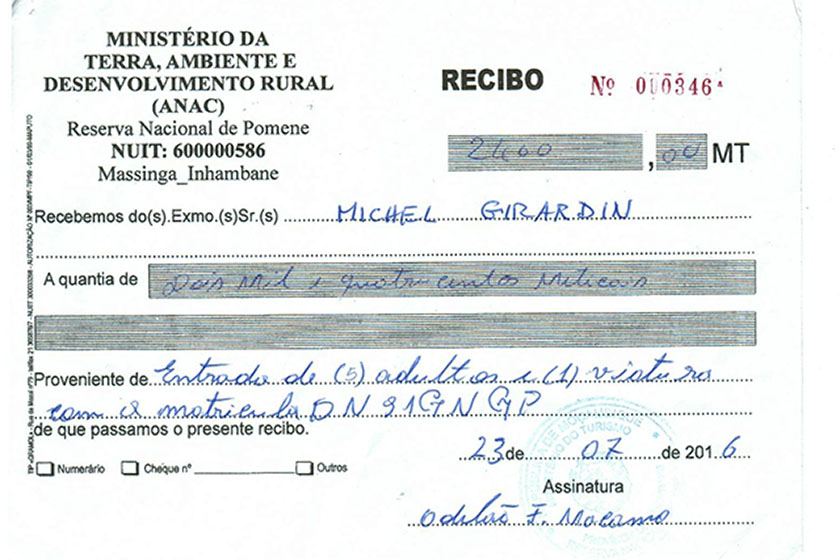 MINISTÉRIO DA
TERRA, AMBIENTE E
DESENVOLVIMENTO RURAL
(ANAC)
Reserva Nacional de Pomene
NUIT: 600000586
Massinga_Inhambane
RECIBO Nº 000346
2400,00 MT
Recebemos do(s).Exmo.(s)Sr.(s) MICHEL GIRARDIN
A quantia de Dois Mil e quatrocentos Meticais
Proveniente de Entrada de (5) adultos e (1) viatura
com a matricula DN 91GN GP
de que passamos o presente recibo.
Numerário Cheque nº Outros
23 de 07 de 2016
Assinatura
F. Macamo